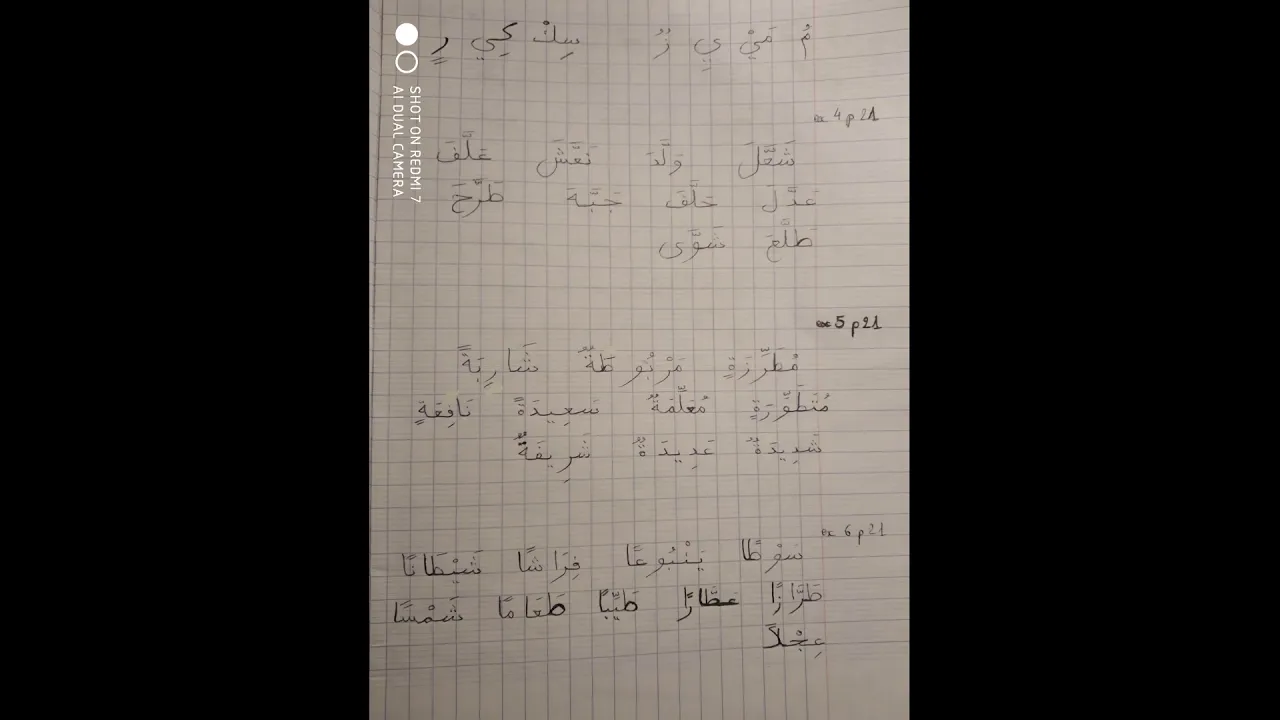 مُ مَيْ يِ زٌ سِكْ كِي رٍ
ex 4 p 21
شَغَّلَ وَلَّدَ نَعَّشَ عَلَّفَ
عَدَّلَ خَلَّفَ جَبَّهَ طَرَّحَ
طَلَّعَ شَوَّى
ex 5 p 21
مُطَرِّزَةٍ مَرْبُوطَةٌ شَارِبَةً
مُتَطَوِّرَةٍ مُعَلِّمَةٌ سَعِيدَةً نَافِعَةٍ
شَدِيدَةٌ عَدِيدَةٌ شَرِيفَةٌ
ex 6 p 21
سَوْطًا يَنْبُوعًا فِرَاشًا شَيْطَانًا
طَرَّازًا عَطَّارًا طَيِّبًا طَعَامًا شَمْسًا
عِجْلاً
SHOT ON REDMI 7
AI DUAL CAMERA